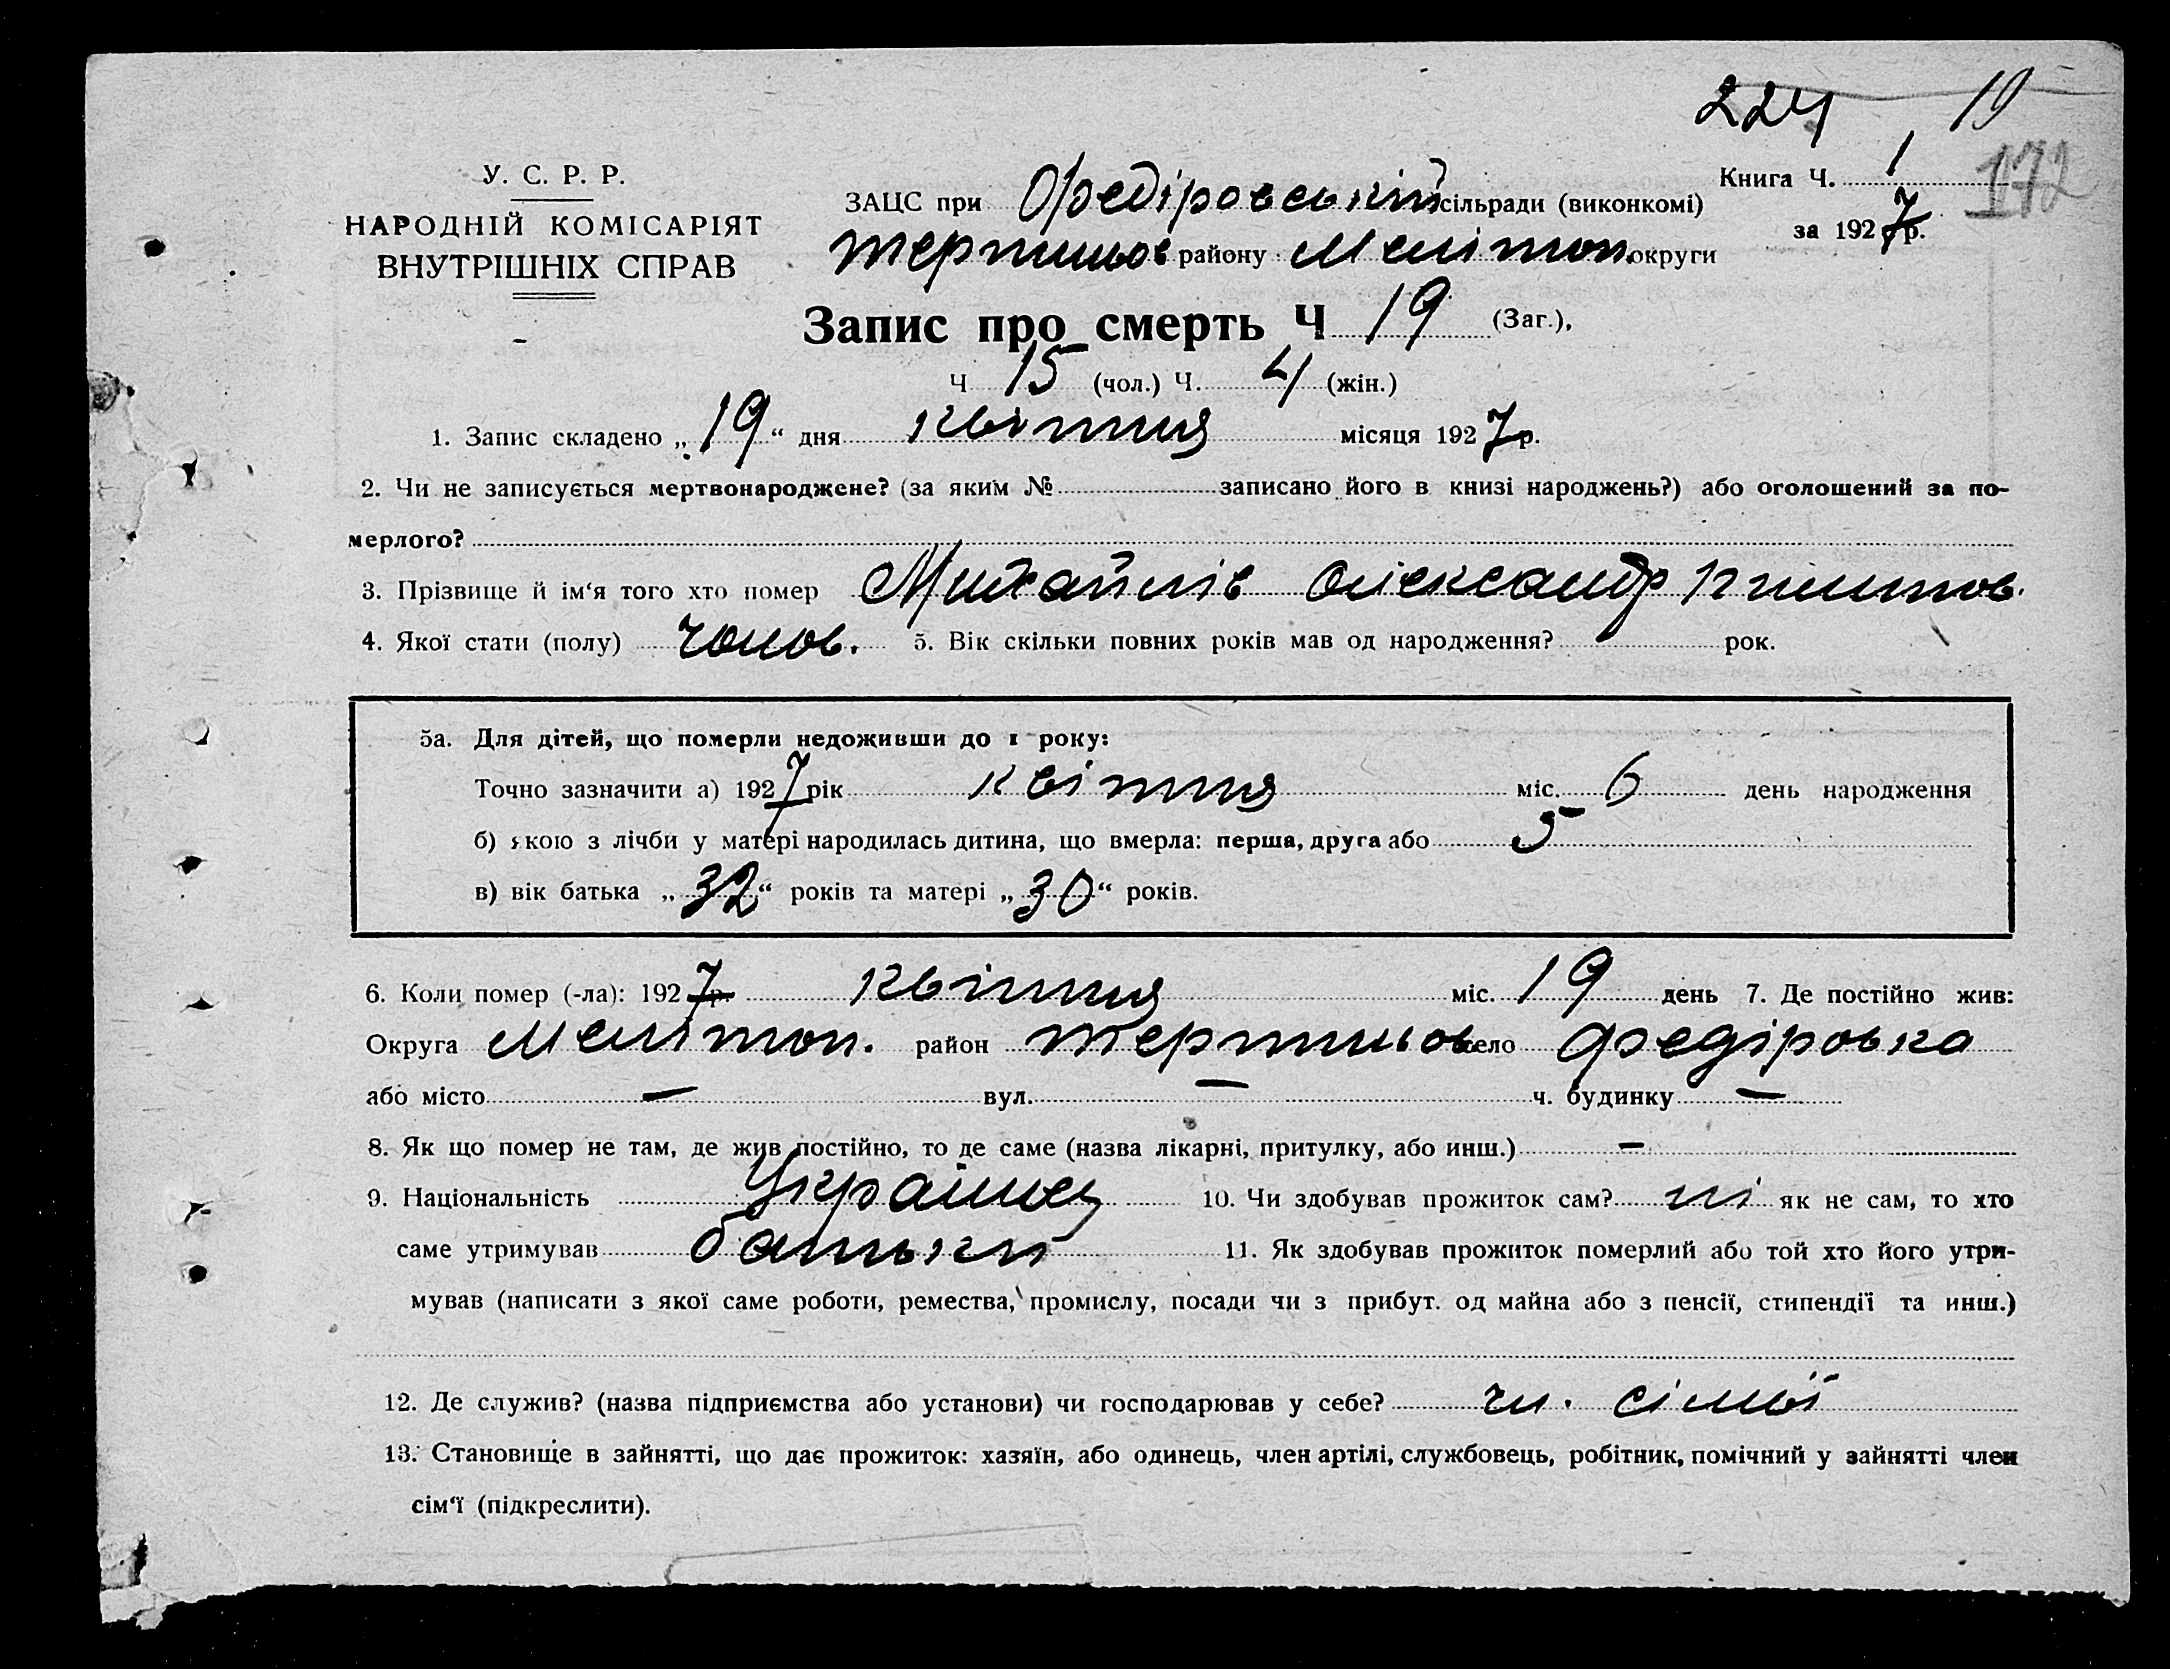 224 19
172
У. С. Р. Р.
НАРОДНІЙ КОМІСАРІЯТ
ВНУТРІШНІХ СПРАВ
Книга Ч. 1
за 1927 р.
ЗАЦС при Федіровській сільради (виконкомі)
Терпиньов району Мелітоп. округи
Запис про смерть Ч 19 (Заг.),
Ч 15 (чол.) Ч. 4 (жін.)
1. Запис складено „19“ дня квітня місяця 1927 р.
2. Чи не записується мертвонароджене? (за яким № записано його в книзі народжень?) або оголошений за по-
мерлого?
3. Прізвище й ім‘я того хто помер Михайлів Олександр
4. Якої стати (полу) чолов. 5. Вік скільки повних років мав од народження? рок.
5а. Для дітей, що померли недоживши до 1 року:
Точно зазначити а) 1927 рік квітня міс. 6 день народження
б) якою з лічби у матері народилась дитина, що вмерла: перша, друга або 5
в) вік батька „32“ років та матері „30“ років.
6. Коли помер (-ла): 1927 р. квітня міс. 19 день 7. Де постійно жив:
Округа Мелітоп. район Терпиньов село Федіровка
або місто — вул. — ч. будинку —
8. Як що помер не там, де жив постійно, то де саме (назва лікарні, притулку, або инш.) —
9. Національність Українец 10. Чи здобував прожиток сам? ні як не сам, то хто
саме утримував батьки 11. Як здобував прожиток померлий або той хто його утри-
мував (написати з якої саме роботи, ремества, промислу, посади чи з прибут. од майна або з пенсії, стипендії та инш.)
12. Де служив? (назва підприємства або установи) чи господарював у себе? чл. сімьї
13. Становище в зайнятті, що дає прожиток: хазяїн, або одинець, член артілі, службовець, робітник, помічний у зайнятті член
сім‘ї (підкреслити).